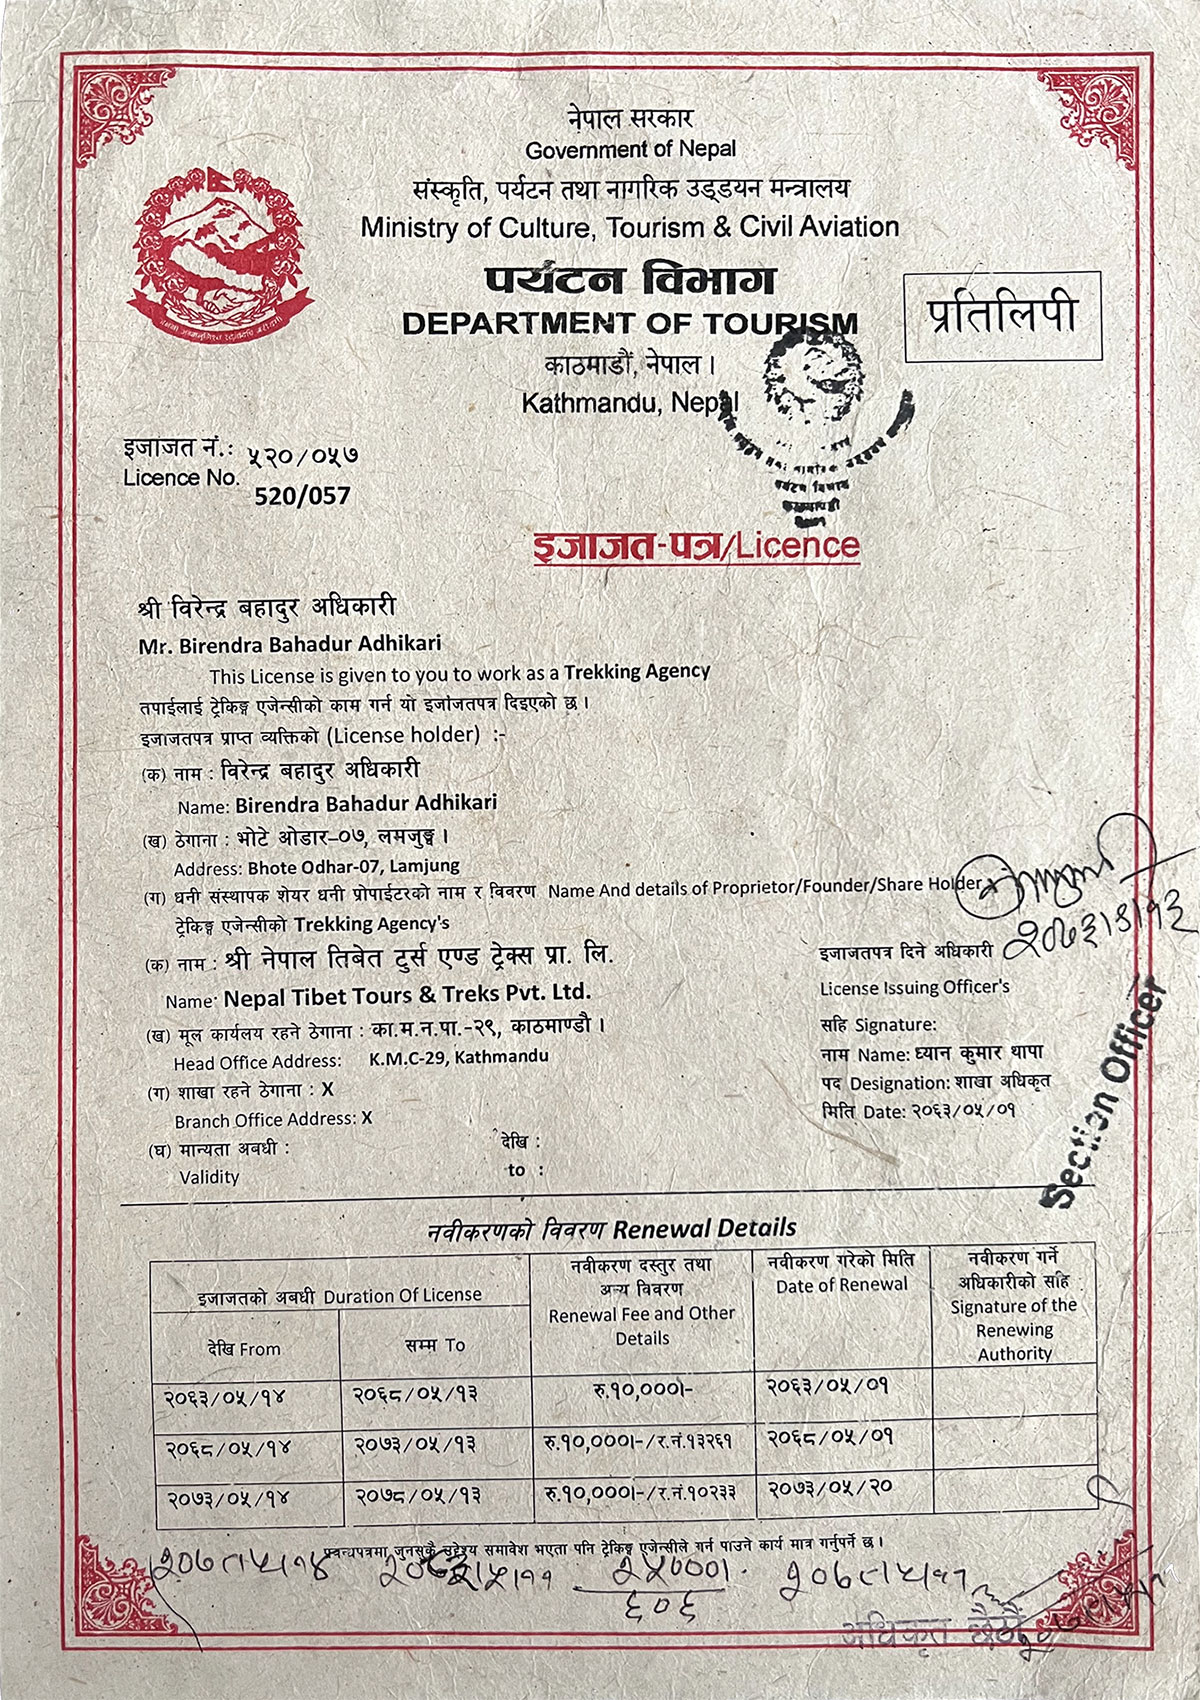 नेपाल सरकार
Government of Nepal
संस्कृति, पर्यटन तथा नागरिक उड्डयन मन्त्रालय
Ministry of Culture, Tourism & Civil Aviation
पर्यटन विभाग
DEPARTMENT OF TOURISM
प्रतिलिपी
काठमाडौं, नेपाल।
Kathmandu, Nepal
इजाजत नं.: ५२०/०५७
Licence No. 520/057
इजाजत-पत्र/Licence
श्री विरेन्द्र बहादुर अधिकारी
Mr. Birendra Bahadur Adhikari
This License is given to you to work as a Trekking Agency
तपाईलाई ट्रेकिङ्ग एजेन्सीको काम गर्न यो इजाजतपत्र दिइएको छ।
इजाजतपत्र प्राप्त व्यक्तिको (License holder) :-
(क) नाम : विरेन्द्र बहादुर अधिकारी
Name: Birendra Bahadur Adhikari
(ख) ठेगाना : भोटे ओडार-०७, लमजुङ्ग।
Address: Bhote Odhar-07, Lamjung
(ग) धनी संस्थापक शेयर धनी प्रोपाईटरको नाम र विवरण Name And details of Proprietor/Founder/Share Holder
ट्रेकिङ्ग एजेन्सीको Trekking Agency's
(क) नाम : श्री नेपाल तिबेत टुर्स एण्ड ट्रेक्स प्रा. लि.
Name: Nepal Tibet Tours & Treks Pvt. Ltd.
(ख) मूल कार्यलय रहने ठेगाना : का.म.न.पा.-२९, काठमाण्डौ।
Head Office Address: K.M.C-29, Kathmandu
(ग) शाखा रहने ठेगाना : X
Branch Office Address: X
(घ) मान्यता अबधी : देखि :
Validity to :
इजाजतपत्र दिने अधिकारी
License Issuing Officer's
सहि Signature:
नाम Name: ध्यान कुमार थापा
पद Designation: शाखा अधिकृत
मिति Date: २०६३/०५/०१
Section Officer
नवीकरणको विवरण Renewal Details
इजाजतको अबधी Duration Of License
देखि From
सम्म To
नवीकरण दस्तुर तथा
अन्य विवरण
Renewal Fee and Other
Details
नवीकरण गरेको मिति
Date of Renewal
नवीकरण गर्ने
अधिकारीको सहि
Signature of the
Renewing
Authority
२०६३/०५/१४ २०६८/०५/१३ रु.१०,०००।- २०६३/०५/०१
२०६८/०५/१४ २०७३/०५/१३ रु.१०,०००।-/र.नं.१३२६१ २०६८/०५/०१
२०७३/०५/१४ २०७८/०५/१३ रु.१०,०००।-/र.नं.१०२३३ २०७३/०५/२०
प्रबन्धपत्रमा जुनसुकै उद्देश्य समावेश भएता पनि ट्रेकिङ्ग एजेन्सीले गर्न पाउने कार्य मात्र गर्नुपर्ने छ।
२५०००।
६०६
अधिकृत छैठौं